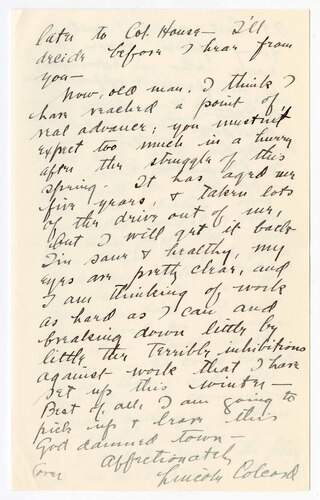 later to Col. House— I'll
decide before I hear from
you—
Now, old man, I think I
have reached a point of
real advance; you mustn't
expect too much in a hurry
after the struggle of this
spring. It has aged me
five years, & taken lots
of the drive out of me,
but I will get it back
I'm sane & healthy, my
eyes are pretty clear, and
I am thinking of work
as hard as I can and
breaking down little by
little the terrible inhibitions
against work that I have
set up this winter—
Best of all, I am going to
pick up & leave this
God damned town—
Affectionately
Lincoln Colcord
over